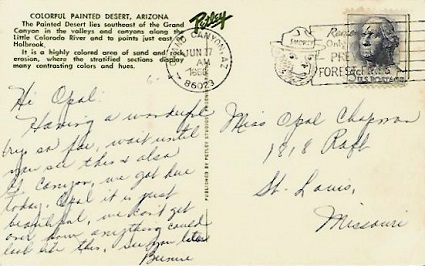 COLORFUL PAINTED DESERT, ARIZONA
The Painted Desert lies southeast of the Grand
Canyon in the valleys and canyons along the
Little Colorado River and to points just east of
Holbrook.
It is a highly colored area of sand and rock
erosion, where the stratified sections display
many contrasting colors and hues.
Petley
CANYON, AZ
JUN 17
AM
86023
Only You
PRE
FOREST FIRES
U.S. POSTAGE
PUBLISHED BY PETLEY STUDIOS
Hi Opal:
Having a wonderful
try so far, wait until
you see this & also
Canyon, we got here
today. Opal it is just
beautiful, we can't get
over how anything could
look like this. See you later
Bernie
Miss Opal Chapman
1818 Raft
St. Louis,
Missouri